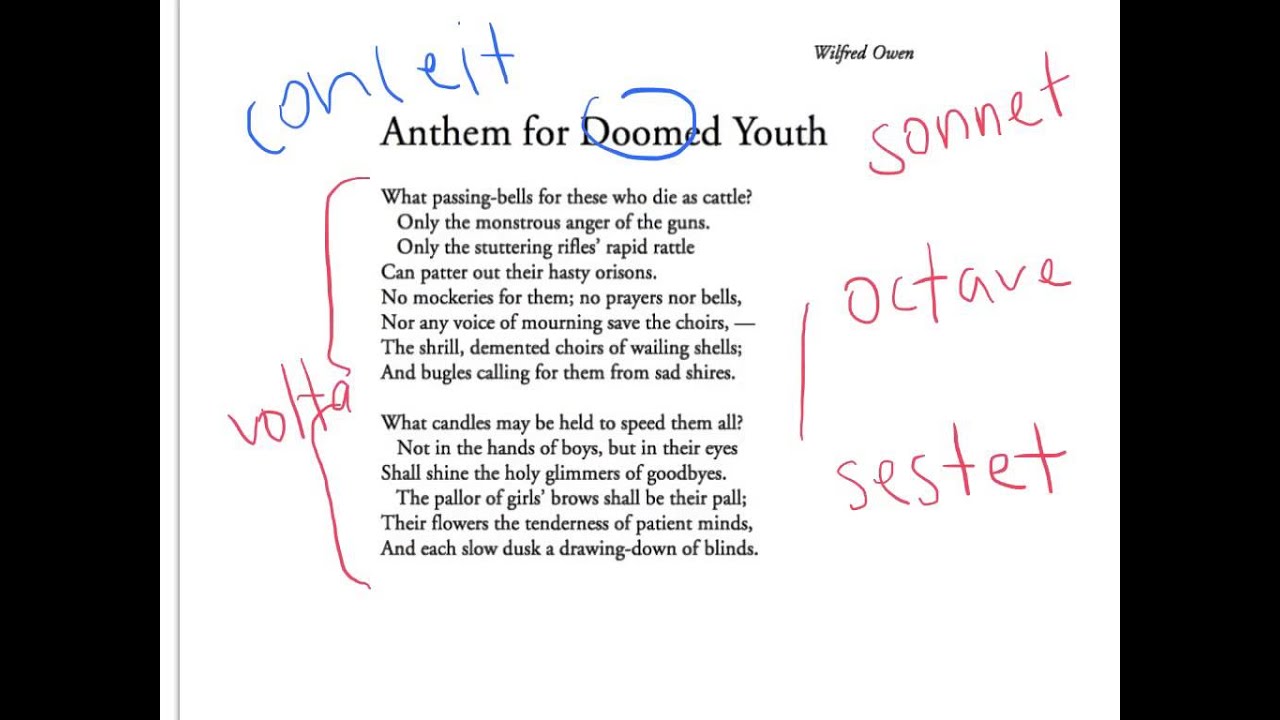 Wilfred Owen
conleit
sonnet
Anthem for Doomed Youth
What passing-bells for these who die as cattle?
Only the monstrous anger of the guns.
Only the stuttering rifles’ rapid rattle
Can patter out their hasty orisons.
No mockeries for them; no prayers nor bells,
Nor any voice of mourning save the choirs, —
The shrill, demented choirs of wailing shells;
And bugles calling for them from sad shires.
octave
volta
What candles may be held to speed them all?
Not in the hands of boys, but in their eyes
Shall shine the holy glimmers of goodbyes.
The pallor of girls’ brows shall be their pall;
Their flowers the tenderness of patient minds,
And each slow dusk a drawing-down of blinds.
sestet